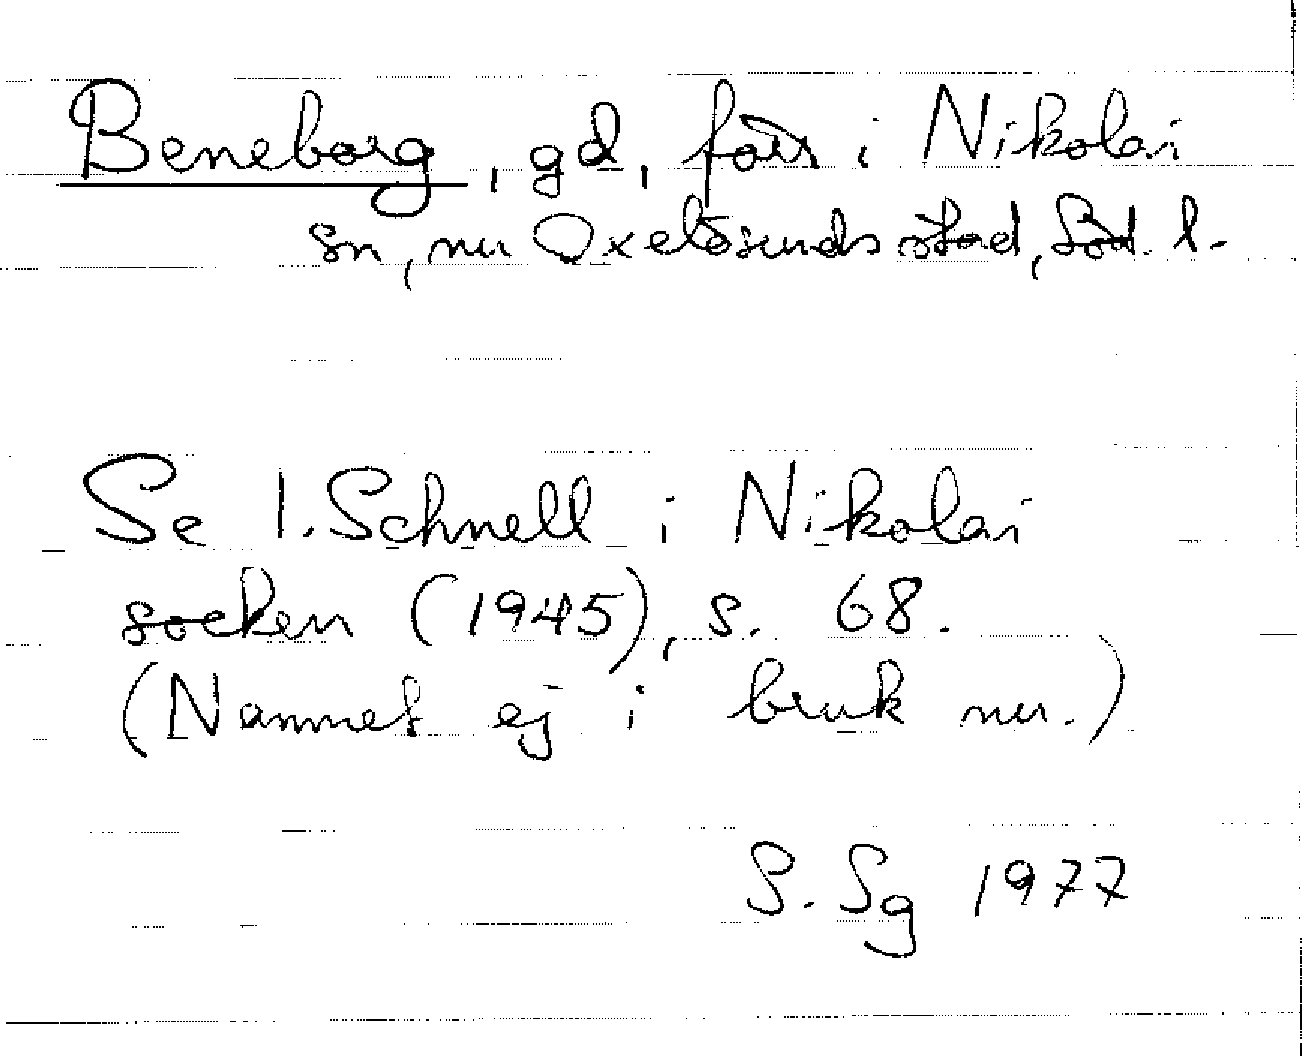 Beneborg, gd, förr i Nikolai
sn, nu Oxelösunds stad, Söd. l.
Se I. Schnell i Nikolai
socken (1945), s. 68.
(Namnet ej i bruk nu.)
S. Sg 1977